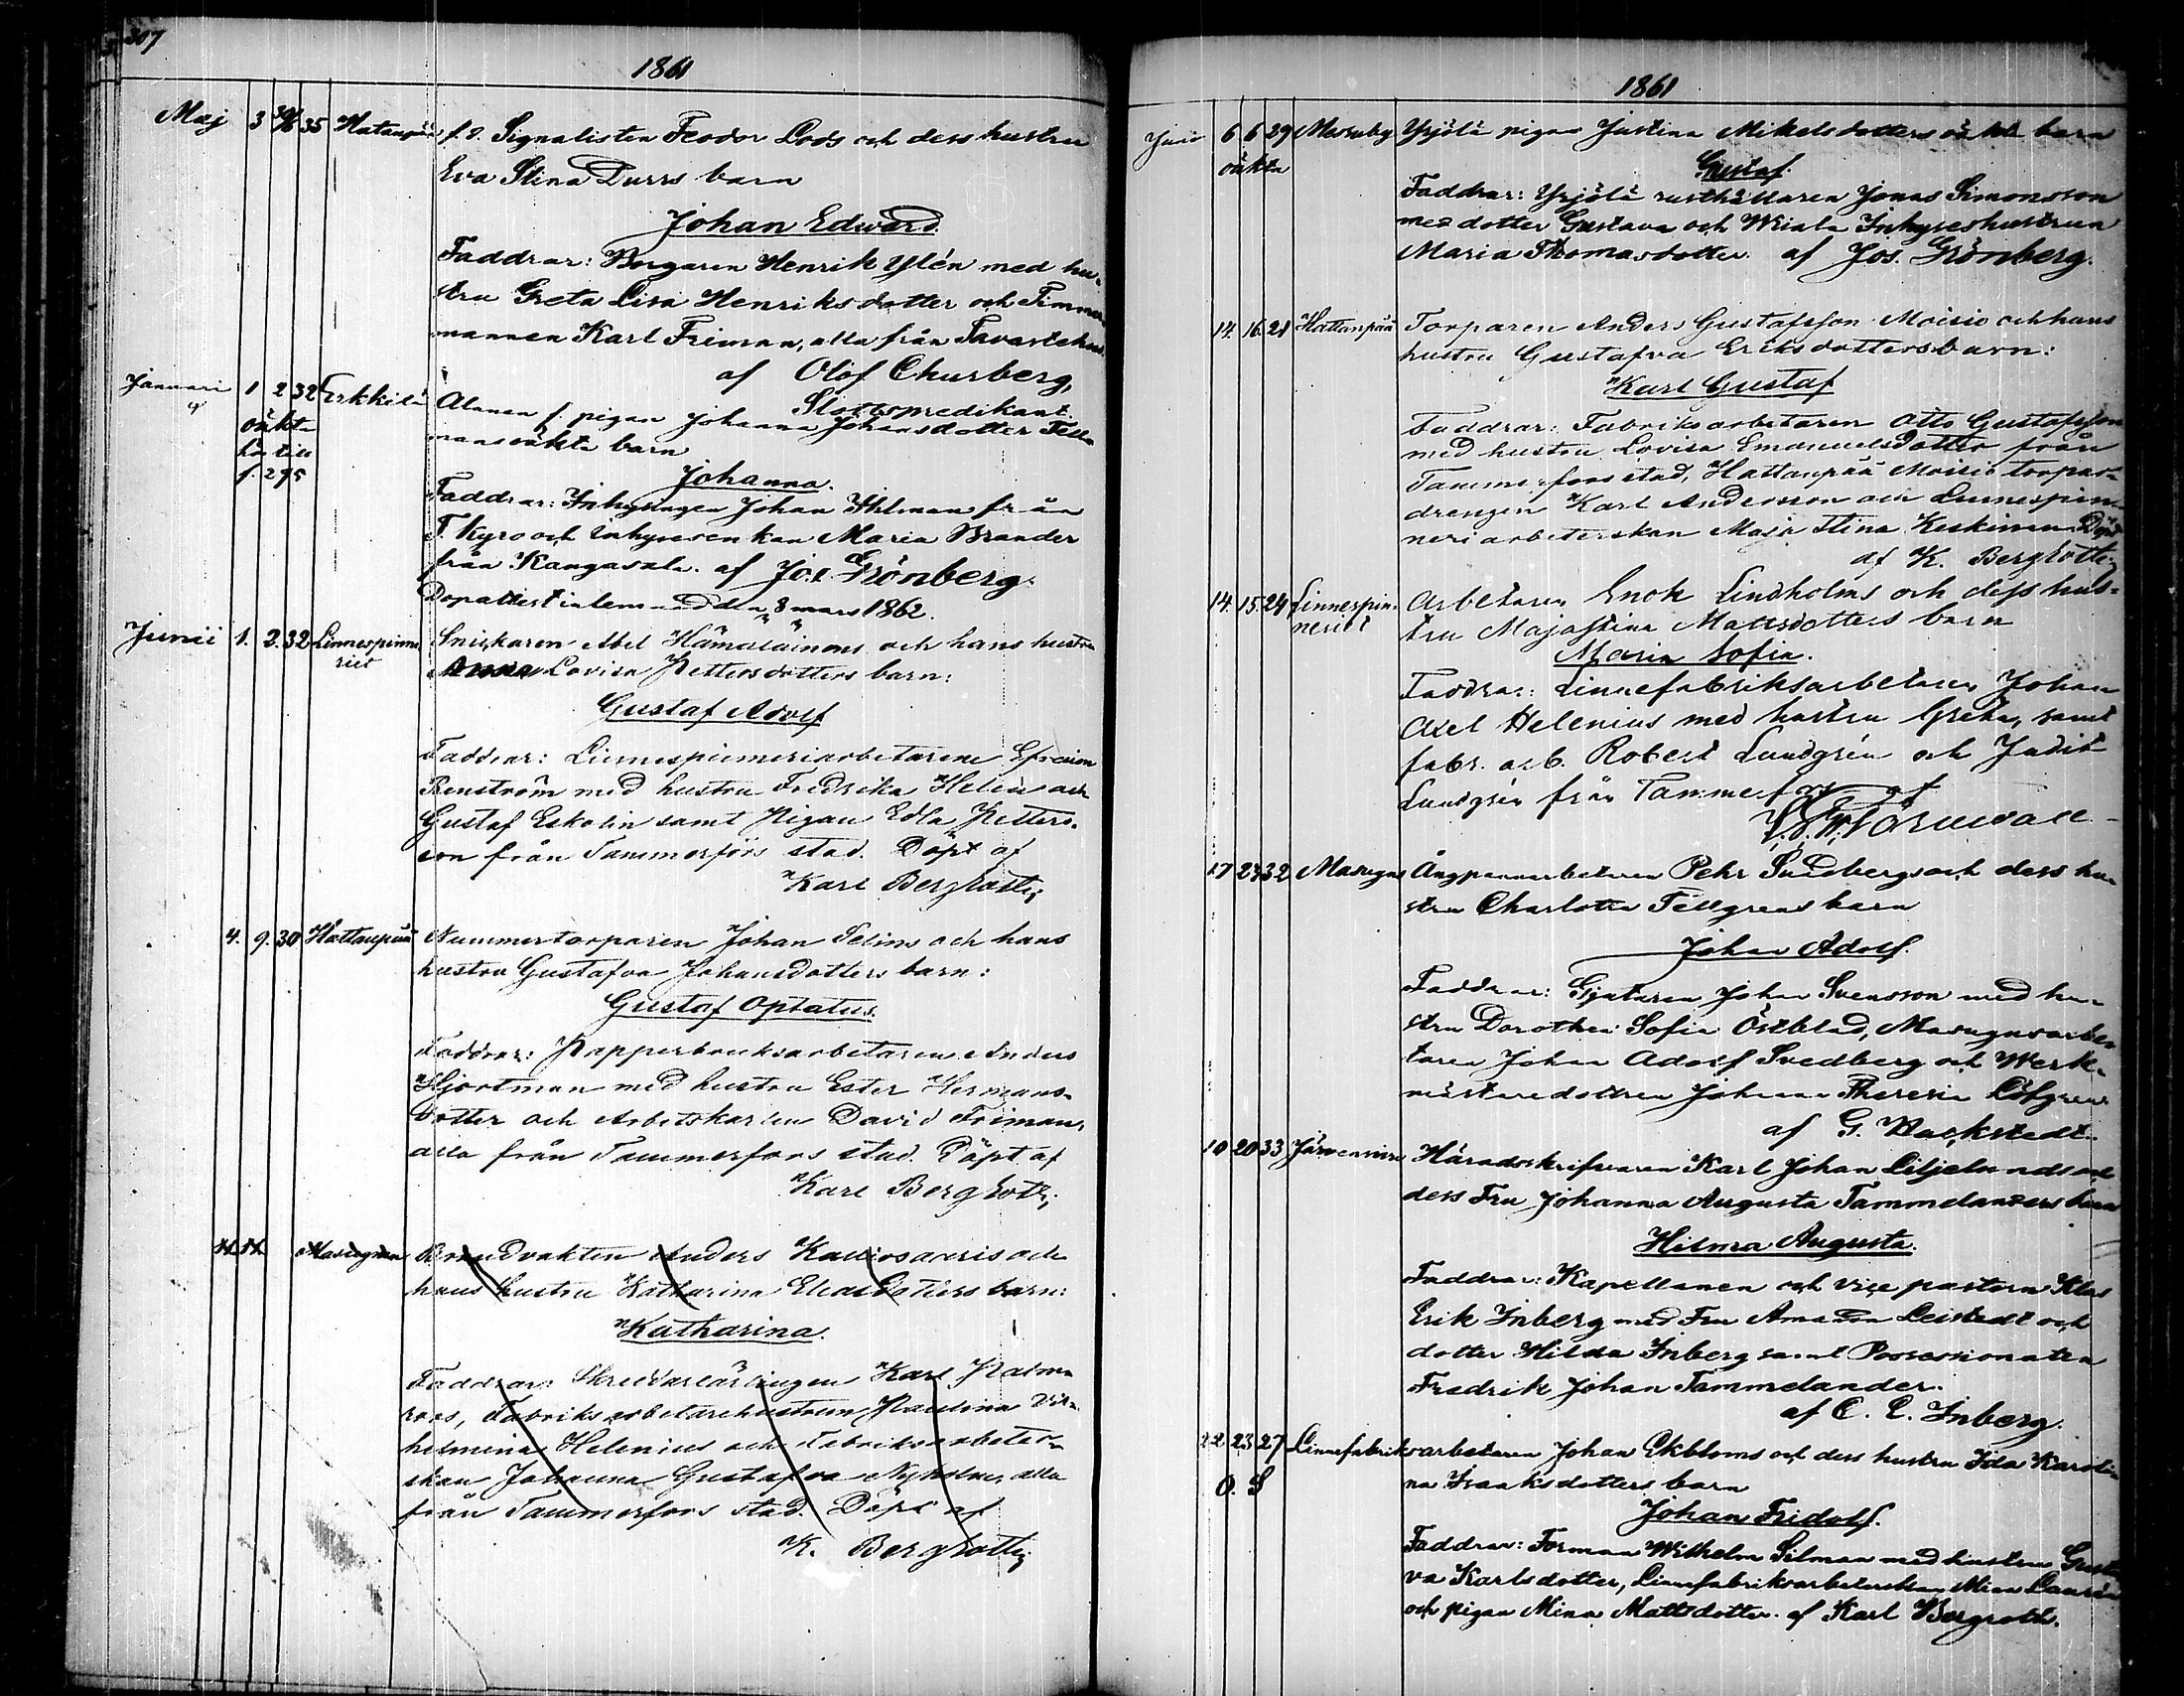 307
1861
Maj 3 30/6 35 Hatanpää f.d. Signalisten Feodor Lods och dess hustru
Eva Stina Durrs barn
Johan Edward.
Faddrar: Borgaren Henrik Ylén med hu-
stru Greta Lisa Henriksdotter och Timmer-
mannen Karl Friman, alla från Tavastehus.
af Olof Churberg,
Slottspredikant.
Januari 1 2 32 Ferkkilä Alanen f. pigan Johanna Johansdotter Fell-
mans oäkta barn
oäkta
hör till
f. 295
Johanna.
Faddrar: Inhysingen Johan Ihlman från
T. Kyro och inhysesenkan Maria Brander
från Kangasala. af Jos. Grönberg.
Dopattest inlemnad den 8 mars 1862.
Junii 1. 2. 32 Linnespinne Snickaren Abel Hämäläinens och hans hustru
riet Lovisa Pettersdotters barn:
Gustaf Adolf
Faddrar: Linnespinneriarbetarene Efraim
Renström med hustru Fredrika Helén och
Gustaf Eskolin samt Pigan Edla Petters-
son från Tammerfors stad. Döpt af
Karl Bergroth;
4. 9. 30 Hattanpää Nummertorparen Johan Selins och hans
hustru Gustafva Johansdotters barn:
Gustaf Optatus.
Faddrar: Pappersbruksarbetaren Anders
Hjortman med hustru Ester Hermans-
dotter och Arbetskarlen David Friman,
alla från Tammerfors stad. Döpt af
Karl Bergroth;
11. 11. Masugnen Brandvakten Anders och
hans hustru Katharina Eliasdotters barn:
Katharina.
Faddrar: Skreddarlärlingen Karl Palm-
roos, Fabriksarbetarehustrun Paulina Vil-
helmina Helenius och Fabriksarbeter-
skan Johanna Gustafva Nyholm, alla
från Tammerfors stad. Döpt af
K. Bergroth;
1861
Juni 6 6 29 Messuby Yrjölä pigan Justina Mikelsdotters oäkta barn
oäkta
Gustaf.
Faddrar: Yrjölä rusthållaren Jonas Simonsson
med dotter Gustava och Wiiala Inhyseshustrun
Maria Thomasdotter. af Jos. Grönberg.
14. 16. 21 Hattanpää Torparen Anders Gustafsson Moisio och hans
hustru Gustafva Eriksdotters barn:
Karl Gustaf
Faddrar: Fabriksarbetaren Otto Gustafsson
med hustru Lovisa Emanuelsdotter från
Tammerfors stad, Hattanpää Moisio torpar-
drengen Karl Andersson och Linnespin-
neriarbeterskan Maja Stina Keskinen. Döpt
af K. Bergroth;
14. 15. 24 Linnespin- Arbetaren Enok Lindholms och dess hus-
neriet tru Maja Stina Mattsdotters barn
Maria Sofia.
Faddrar: Linnefabriksarbetaren Johan
Axel Helenius med hustru Greta, samt
fabr. arb. Robert Lundgrén och Judit
Lundgrén från Tammerfors af
17 23 32 Masugns Ångpannarbetaren Pehr Svedbergs och dess hu-
stru Charlotta Tellgrens barn
Johan Adolf.
Faddrar: Gjutaren Johan Svensson med hu-
stru Dorothea Sofia Östblad, Masugnsarbe-
taren Johan Adolf Svedberg och Werk-
mästaredottren Johanna Theresia Löfgren
af G. Wackstedt.
10 20 33 Järvensivu Häradsskrifvaren Karl Johan Liljelunds och
dess Fru Johanna Augusta Tammelanders barn
Hilma Augusta.
Faddrar: Kapellanen och vice pastorn Klas
Erik Inberg med Fru Amanda Leistedt och
dotter Hilda Inberg samt Possessionaten
Fredrik Johan Tammelander.
af C. E. Inberg.
22 23 27 Linnefabriksarbetaren Johan Ekbloms och dess hustru Ida Karoli-
O. S na Isaaksdotters barn
Johan Fridolf.
Faddrar: Forman Wilhelm Silman med hustru Gusta-
va Karlsdotter, Linnefabriksarbeterskan Mina Laurén
och pigan Mina Mattsdotter. af Karl Bergroth.